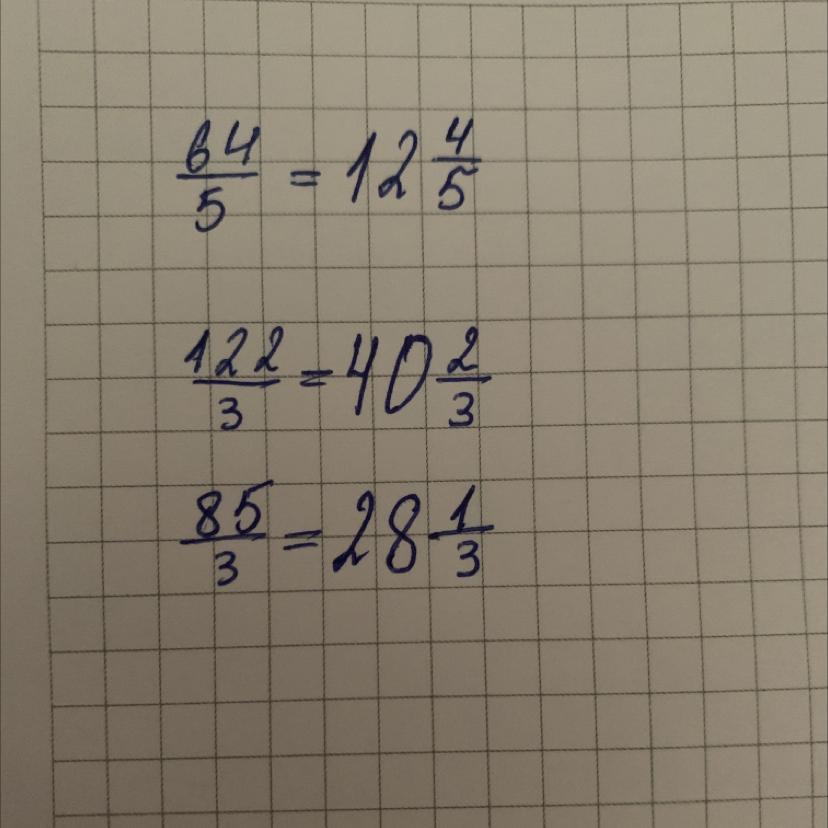 64/5 = 12 4/5
122/3 = 40 2/3
85/3 = 28 1/3